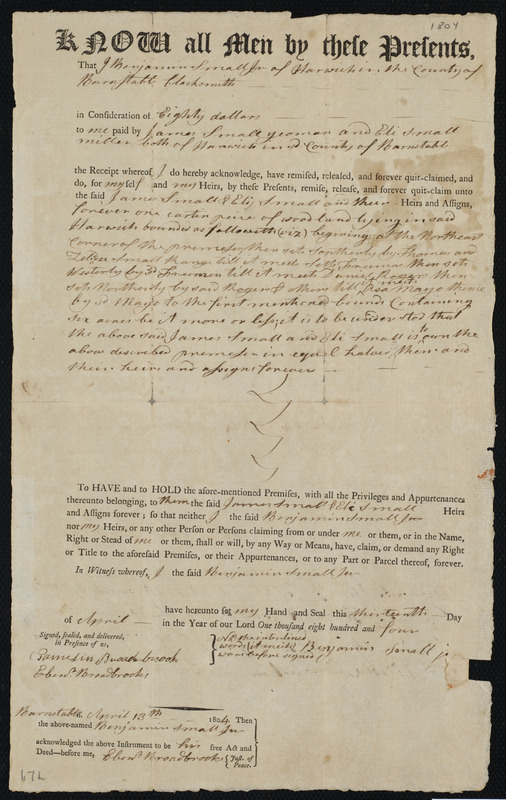 1804
KNOW all Men by these Presents,
That I Benjamin Small Jr of Harwich in the County of
Barnstabl Clocksmith
in Consideration of Eighty dollars
to me paid by James Small yeoman and Eli Small
miller both of Harwich in sd County of Barnstabl
the Receipt whereof I do hereby acknowledge, have remised, released, and forever quit-claimed, and
do, for myself and my Heirs, by these Presents, remise, release, and forever quit-claim unto
the said James Small & Eli Small and their Heirs and Assigns,
forever one cartin peice of wood land lying in said
Harwich bounded as followeth (viz) begining at the Northeast
Corner of the premeses then sets Southerly by Thomas and
Small Range till it meets Freeman then sets
Westerly by sd Freeman till it meets Rogers then
sets Northerly by said Rogers & others till it meets Mayo thence
by sd Mayo to the first mentioned bounds Containing
six acres be it more or less; it is to be under stod that
the above said James Small and Eli Small is to own the
above described premeses in equal halves, them and
their heirs and assigns forever
To HAVE and to HOLD the afore-mentioned Premises, with all the Privileges and Appurtenances
thereunto belonging, to them the said James Small & Eli Small Heirs
and Assigns forever; so that neither I the said Benjamin Small Jr
nor my Heirs, or any other Person or Persons claiming from or under me or them, or in the Name,
Right or Stead of me or them, shall or will, by any Way or Means, have, claim, or demand any Right
or Title to the aforesaid Premises, or their Appurtenances, or to any Part or Parcel thereof, forever.
In Witness whereof, I the said Benjamin Small Jr
have hereunto set my Hand and Seal this thirteenth Day
of April in the Year of our Lord One thousand eight hundred and four
Signed, sealed, and delivered,
in Presence of us,
NB the interlined
words (it meets)
was before signed
Benjamin Small jr
Broadbrook
Ebenr Broadbrooks
Barnstable, April 13th 1804. Then
the above-named Benjamin Small Jr
acknowledged the above Instrument to be his free Act and
Deed—before me, Ebenr Broadbrooks Just. of Peace.
67L